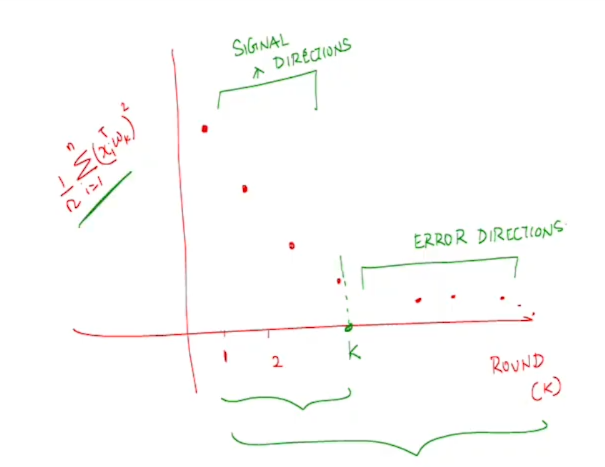 SIGNAL
DIRECTIONS
1/n Σ_{i=1}^{n} (x_i^T w_k)^2
ERROR DIRECTIONS
1
2
K
ROUND
(K)